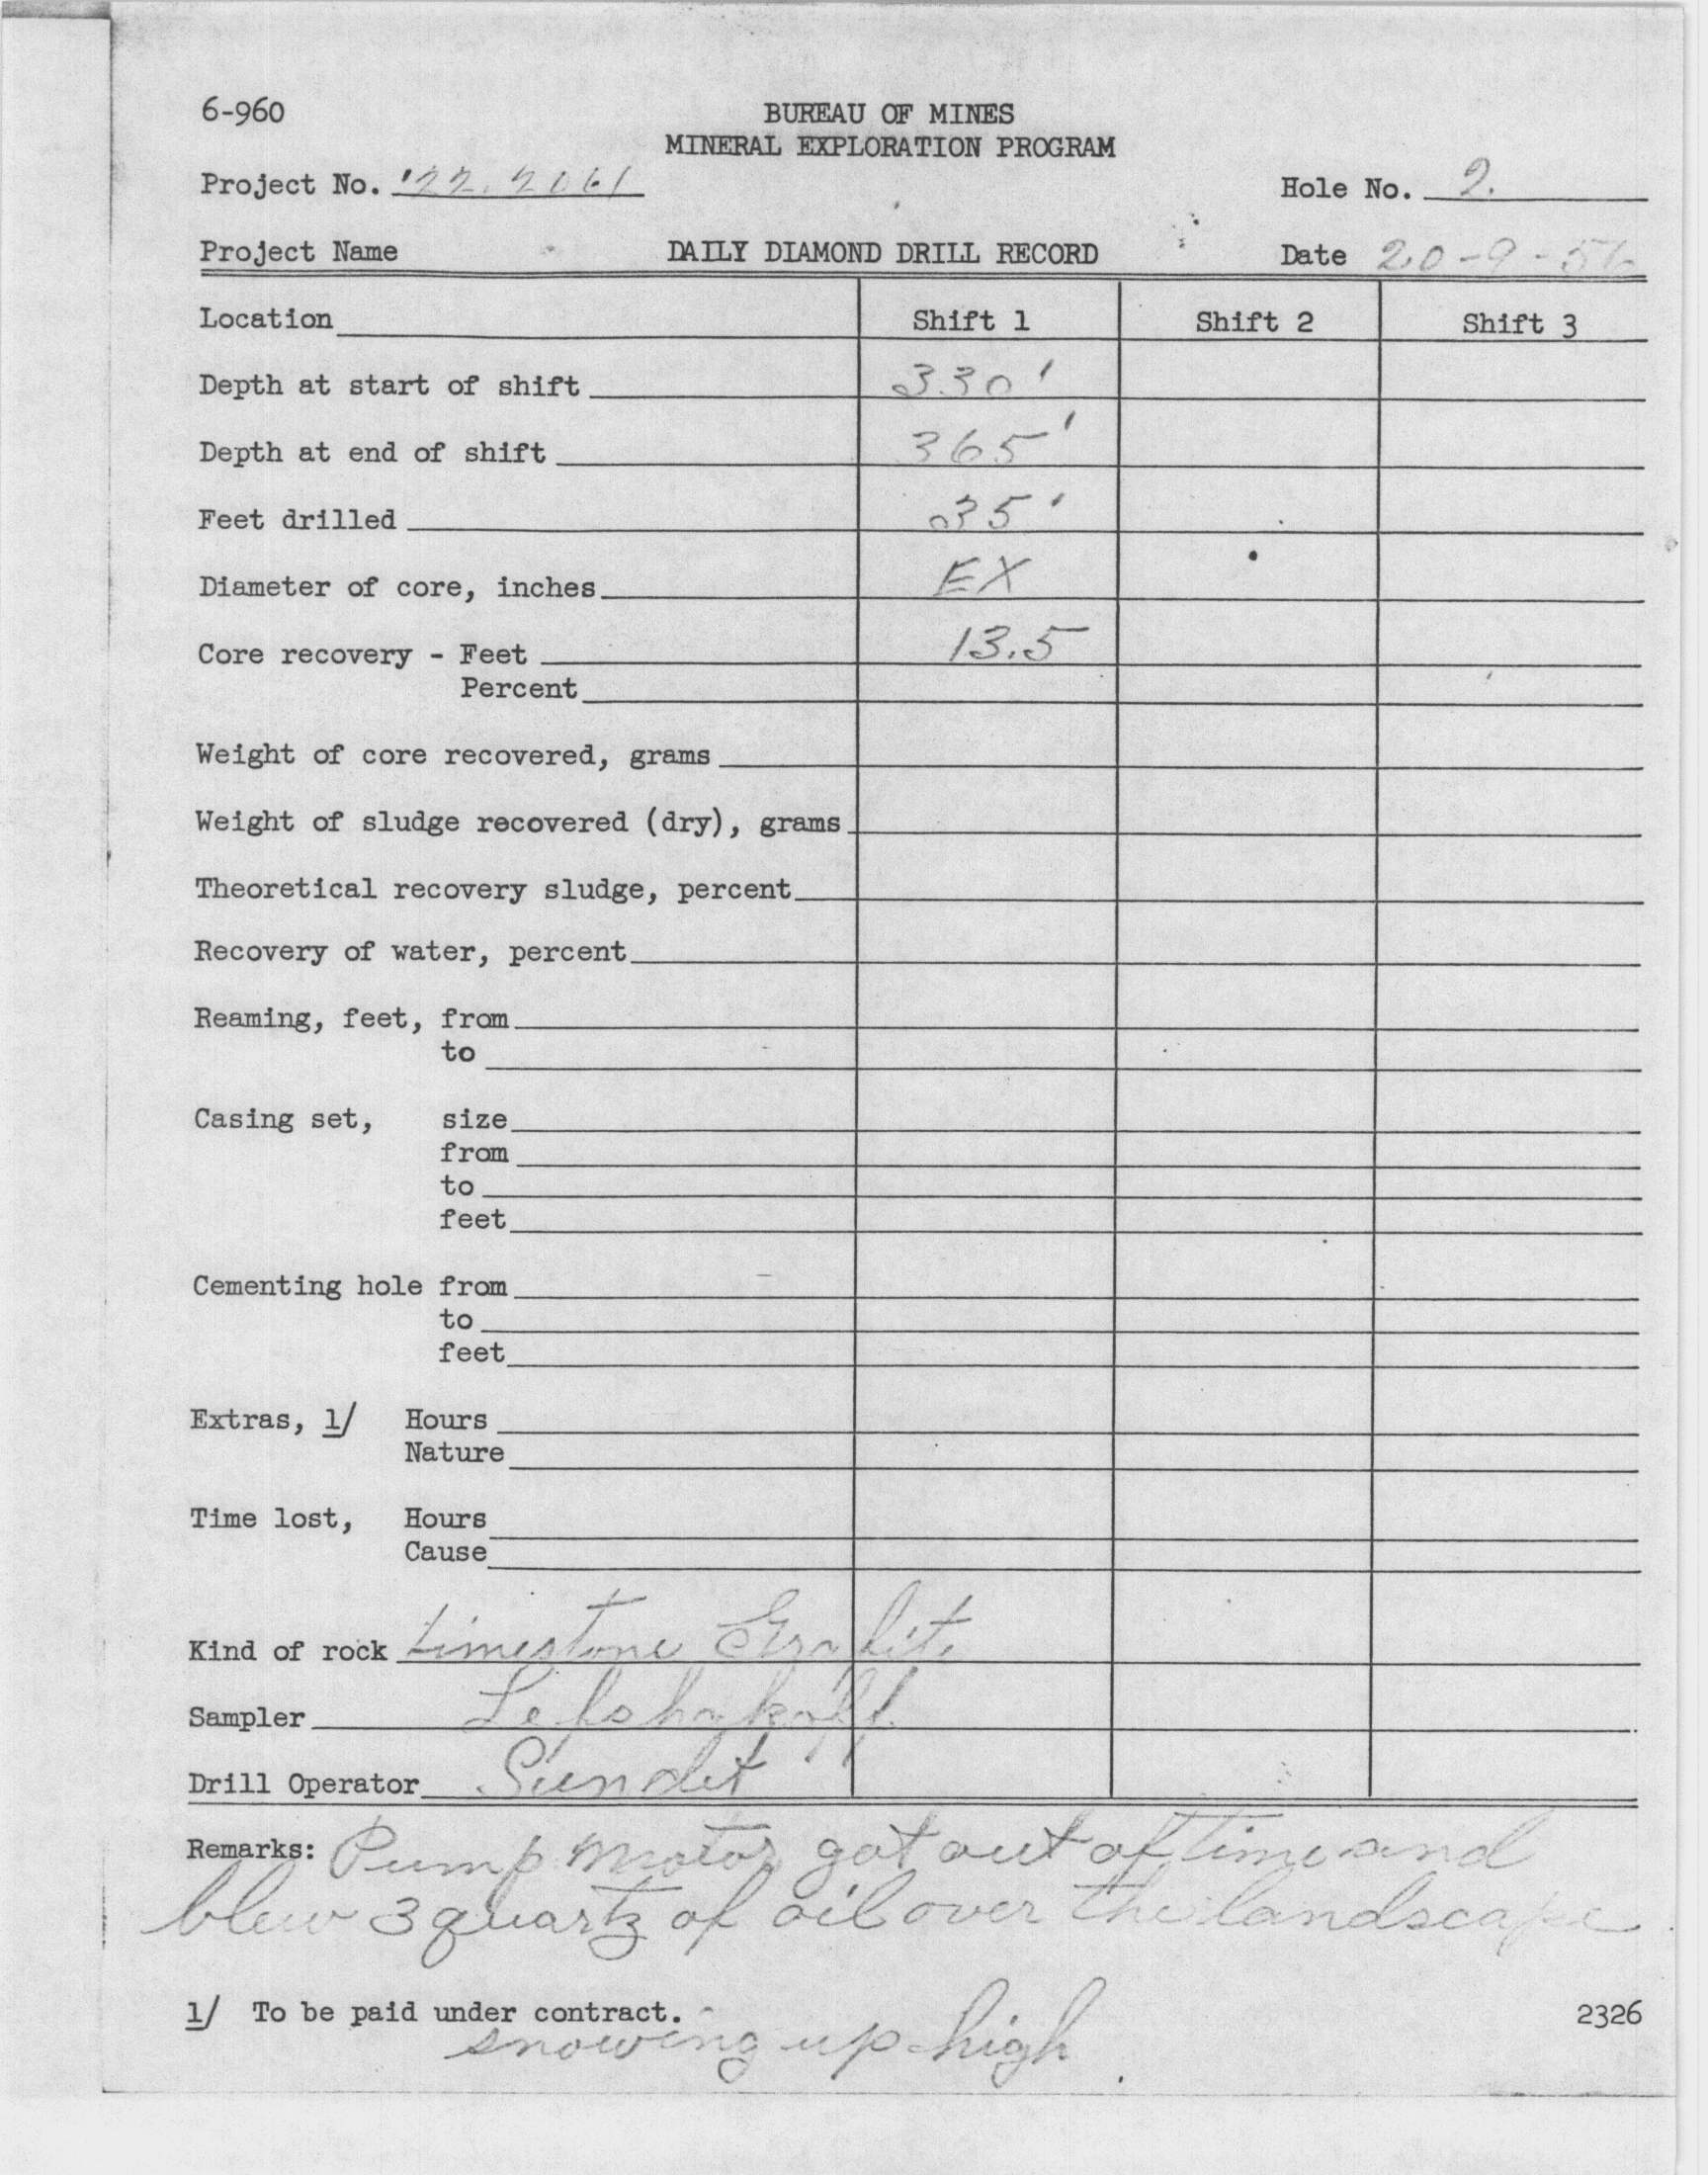 6-960 BUREAU OF MINES
MINERAL EXPLORATION PROGRAM
Project No. '22.2061 Hole No. 2.
Project Name DAILY DIAMOND DRILL RECORD Date 20-9-56
Location Shift 1 Shift 2 Shift 3
Depth at start of shift 330'
Depth at end of shift 365'
Feet drilled 35'
Diameter of core, inches EX
Core recovery - Feet 13.5
Percent
Weight of core recovered, grams
Weight of sludge recovered (dry), grams
Theoretical recovery sludge, percent
Recovery of water, percent
Reaming, feet, from
to
Casing set, size
from
to
feet
Cementing hole from
to
feet
Extras, 1/ Hours
Nature
Time lost, Hours
Cause
Kind of rock Limestone
Sampler
Drill Operator Sundet
Remarks: Pump motor got out of time and
blew 3 quartz of oil over the landscape
1/ To be paid under contract. 2326
snowing up high